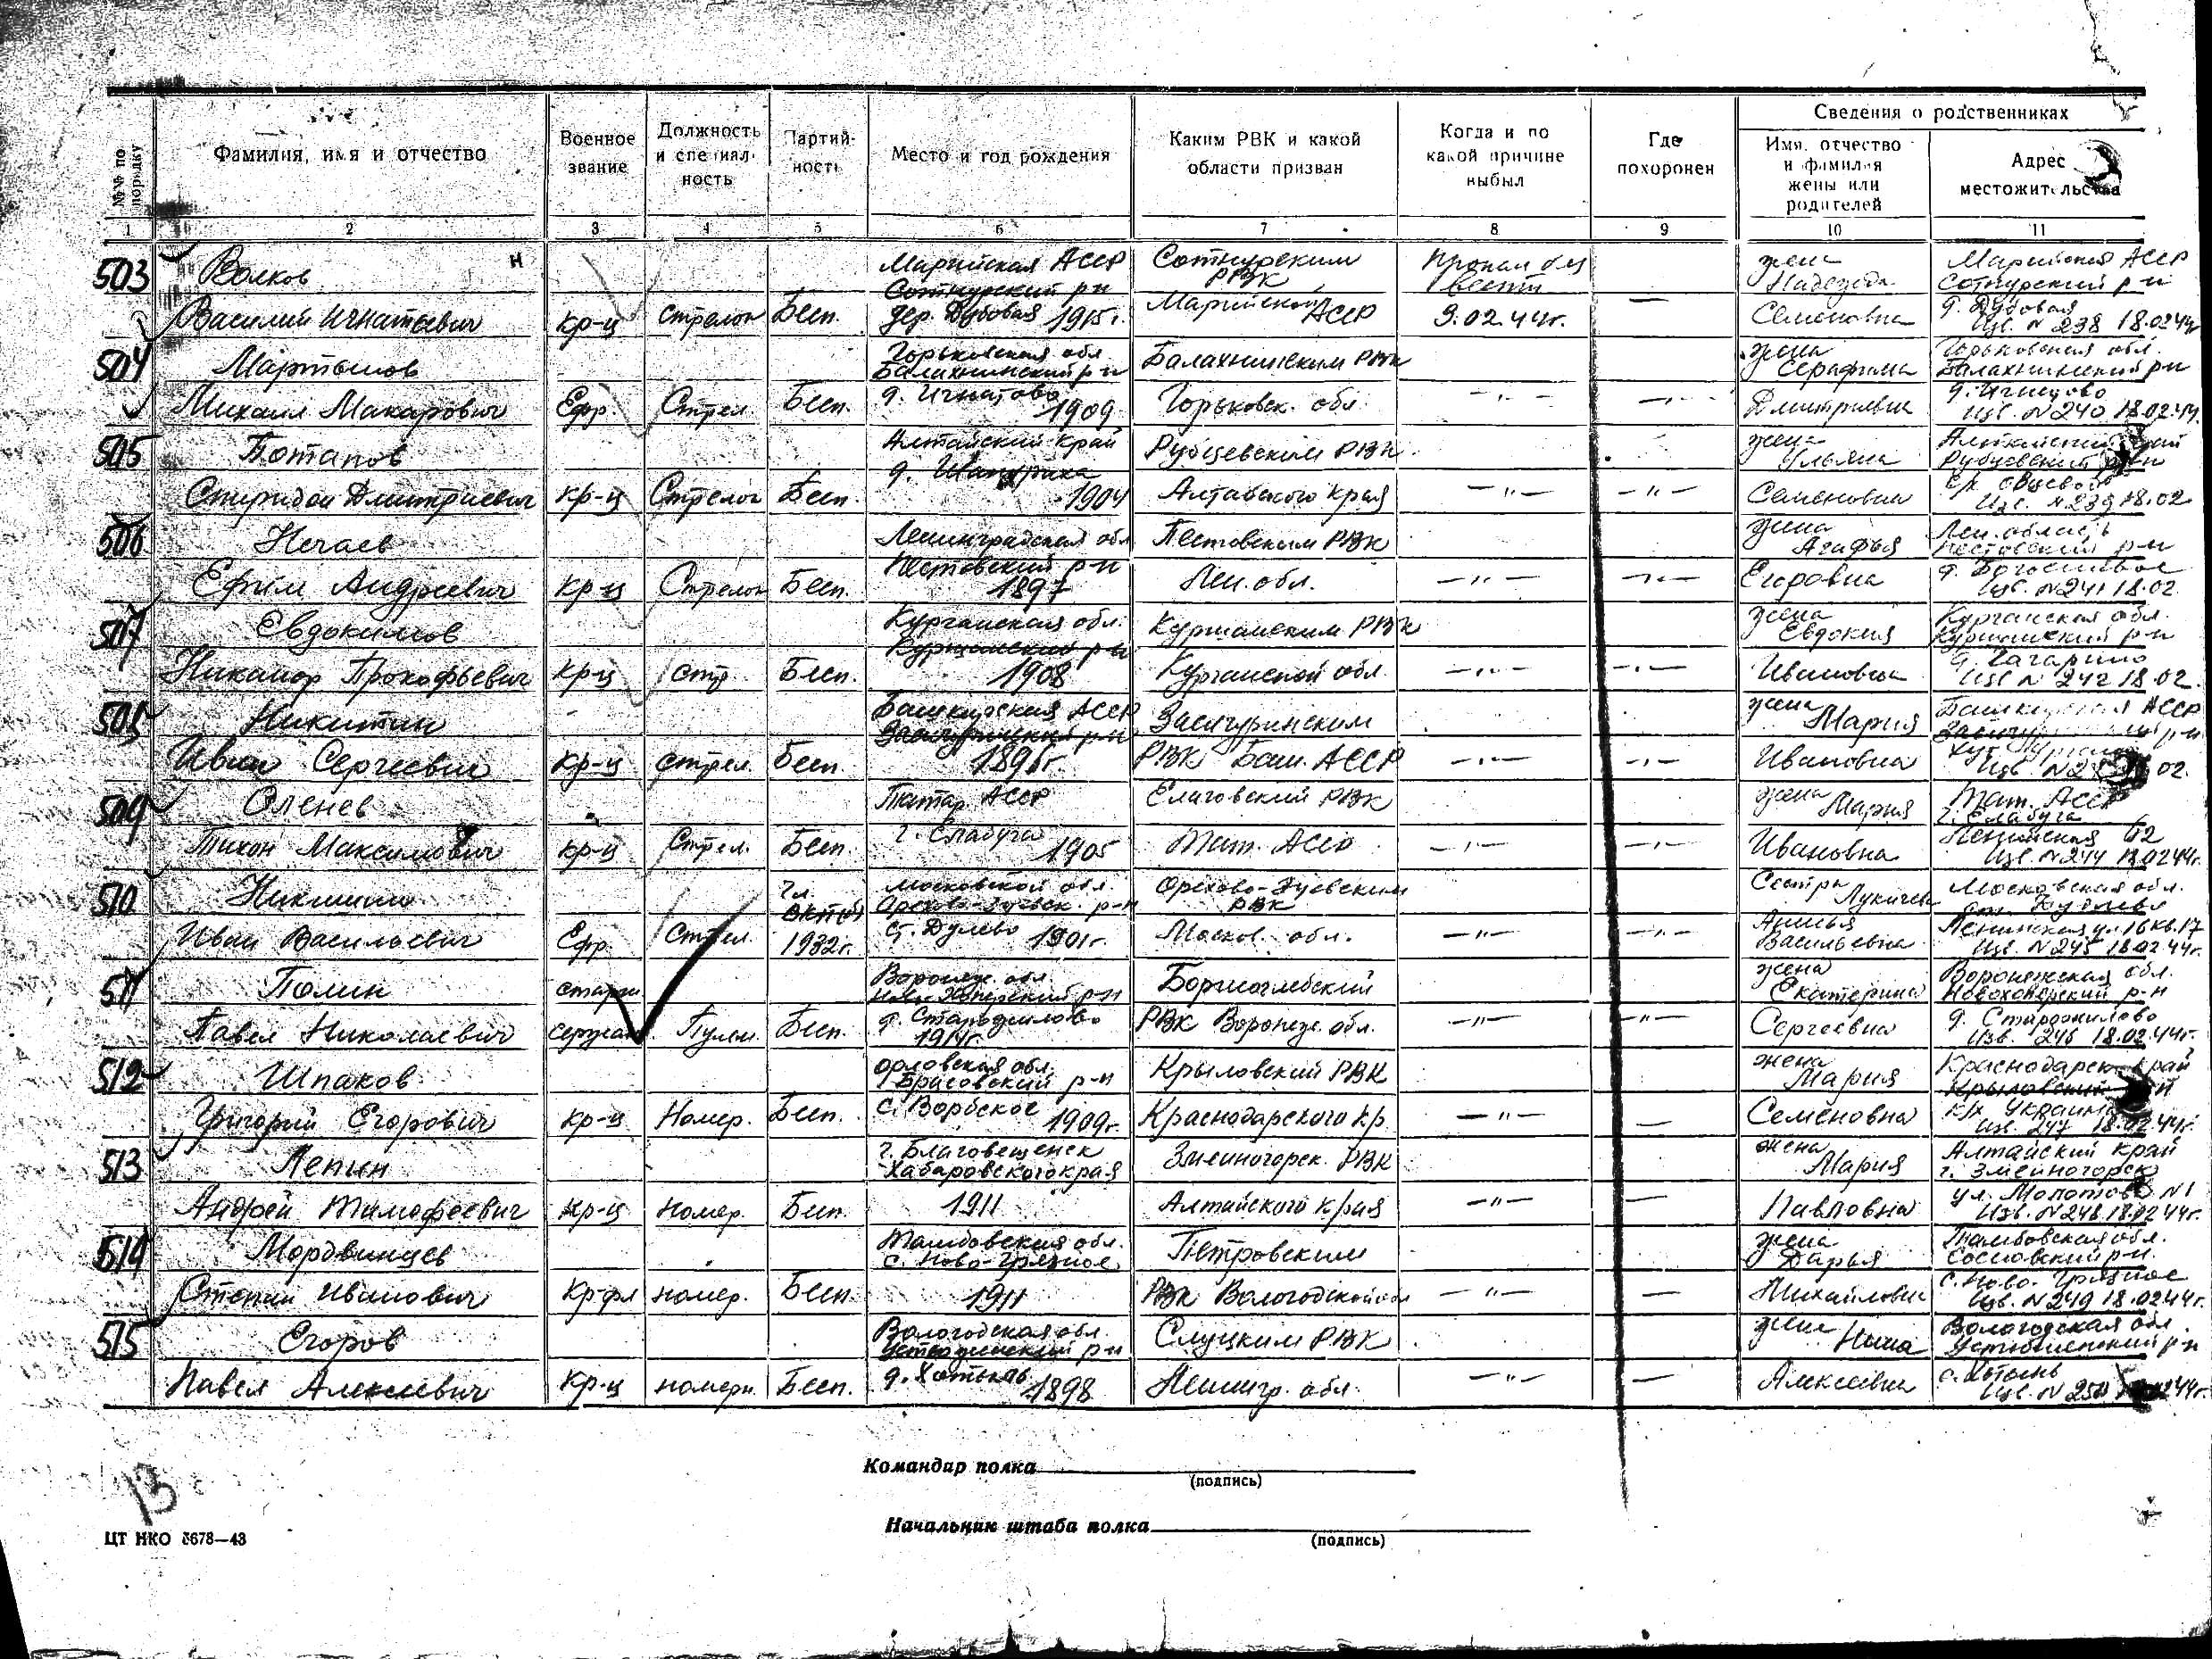 №№ по порядку
Фамилия, имя и отчество
Военное звание
Должность и специальность
Партийность
Место и год рождения
Каким РВК и какой области призван
Когда и по какой причине выбыл
Где похоронен
Сведения о родственниках
Имя, отчество и фамилия жены или родителей
Адрес местожительства
1 2 3 4 5 6 7 8 9 10 11
503 Волков Марийская АССР Сотнурским РВК Пропал без вести жена Надежда Марийская АССР
Сотнурский р-н Сотнурский р-н
Василий Игнатьевич кр-ц стрелок Бесп. дер. Дубовая 1915 г. Марийской АССР 9.02.44г. — Семеновна д. Дубовая
Изв. N 238 18.02.44г
504 Мартынов Горьковская обл. Балахнинский р-н Балахнинским РВК жена Серафима Горьковская обл. Балахнинский р-н
Михаил Макарович Ефр. Стрел. Бесп. д. Игнатово 1909 Горьковск. обл. —"— —"— Дмитриевна
Изв. N 240 18.02.44
505 Потапов Алтайский край Рубцевским РВК жена Ульяна Алтайский край Рубцевский р-н
Спиридон Дмитриевич кр-ц Стрелок Бесп. 1904 Алтайского края —"— —"— Семеновна
Изв. N 239 18.02
506 Нечаев Ленинградская обл Пестовским РВК жена Агафья Лен. область Пестовский р-н
Ефим Андреевич кр-ц Стрелок Бесп. Пестовский р-н 1897 Лен. обл. —"— —"— Егоровна
Изв. N 241 18.02.
507 Евдокимов Курганская обл. Курганским РВК жена Евдокия Курганская обл.
Никанор Прокофьевич кр-ц стр. Бесп. 1908 Курганской обл. —"— —"— Ивановна
Изв N 242 18.02.
508 Никитин Башкирская АССР жена Мария Башкирская АССР
Иван Сергеевич кр-ц стрел. Бесп. РВК Баш. АССР —"— —"— Ивановна
509 Оленев Татар. АССР РВК жена Мария Тат. АССР
г. Елабуга
Тихон Максимович кр-ц Стрел. Бесп. г. Елабуга 1905 Тат. АССР —"— —"— Ивановна Ленинская
Изв. N 244 18.02.44г.
510 Никишин Чл. Московской обл. Орехово-Зуевск. р-н Орехово-Зуевским РВК Сестра Московская обл.
Иван Васильевич Ефр. Стрел. 1932г. ст. Дулево 1901г. Москов. обл. —"— —"— Васильевна Ленинская ул. 16 кв. 17
Изв. N 245 18.02.44г.
511 Полин старш. Воронеж. обл. Борисоглебский жена Екатерина Воронежская обл. Новохоперский р-н
Павел Николаевич сержан. Пулем. Бесп. 1914г. РВК Воронеж. обл. —"— —"— Сергеевна
Изв. 246 18.02.44г.
512 Шпаков Орловская обл. Брасовский р-н Крыловский РВК жена Мария Краснодарск. край
Григорий Егорович кр-ц Номер. Бесп. 1909г. Краснодарского кр. —"— — Семёновна
Изв. 247 18.02.44г.
513 Лепин г. Благовещенск Хабаровского края Змеиногорск. РВК жена Мария Алтайский край г. Змеиногорск
Андрей Тимофеевич кр-ц номер. Бесп. 1911 Алтайского края —"— — Павловна ул. Молотова N1
Изв. N 248 18.02.44г.
514 Мордвинцев Тамбовская обл. с. Ново-Грязное Петровским жена Дарья Тамбовская обл. Сосновский р-н.
Степан Иванович номер. Бесп. 1911 РВК Вологодской обл —"— — Михайловна с. Ново-Грязное
Изв. N 249 18.02.44г.
515 Егоров Вологодская обл. Слуцким РВК жена Нина Вологодская обл.
Павел Алексеевич кр-ц номерн. Бесп. 1898 Ленингр. обл. —"— — Алексеевна
Командир полка
(подпись)
Начальник штаба полка
(подпись)
13
ЦТ НКО 5678—43